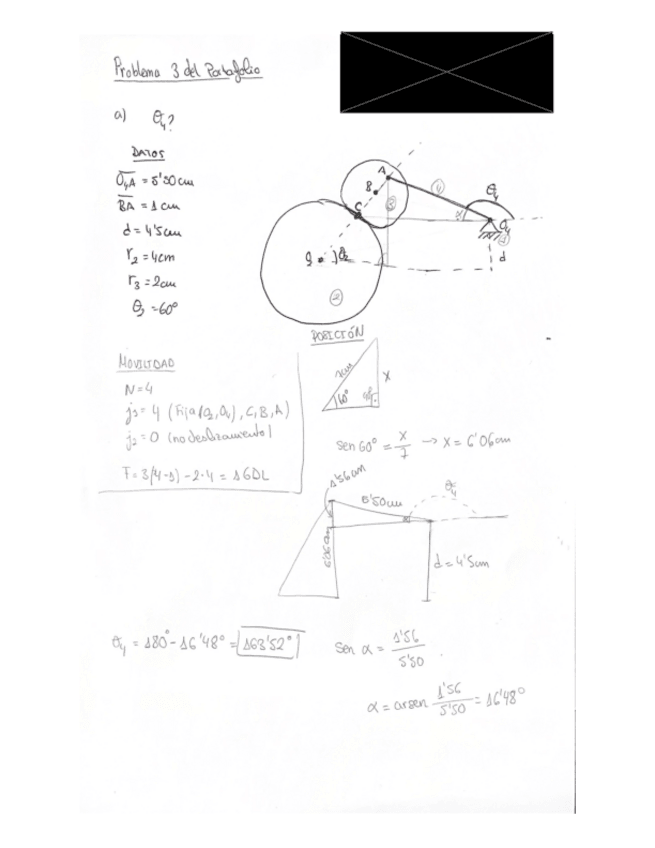 Problema 3 del Portafolio
a) θ4?
DATOS
O4A = 5'50 cm
BA = 1 cm
d = 4'5 cm
r2 = 4cm
r3 = 2cm
θ2 = 60°
A
B
C
4
3
θ4
α
O4
1
d
O2
θ2
2
MOVILIDAD
N=4
j1 = 4 (Fija(O2,O4), C, B, A)
j2 = 0 (no deslizamiento)
F = 3(4-1) - 2·4 = 1 GDL
POSICIÓN
7cm
x
60°
90°
sen 60° = x/7 → x = 6'06 cm
1'56 cm
5'50cm
θ4
α
6'06 cm
d = 4'5cm
θ4 = 180° - 16'48° = 163'52°
sen α = 1'56/5'50
α = arsen 1'56/5'50 = 16'48°